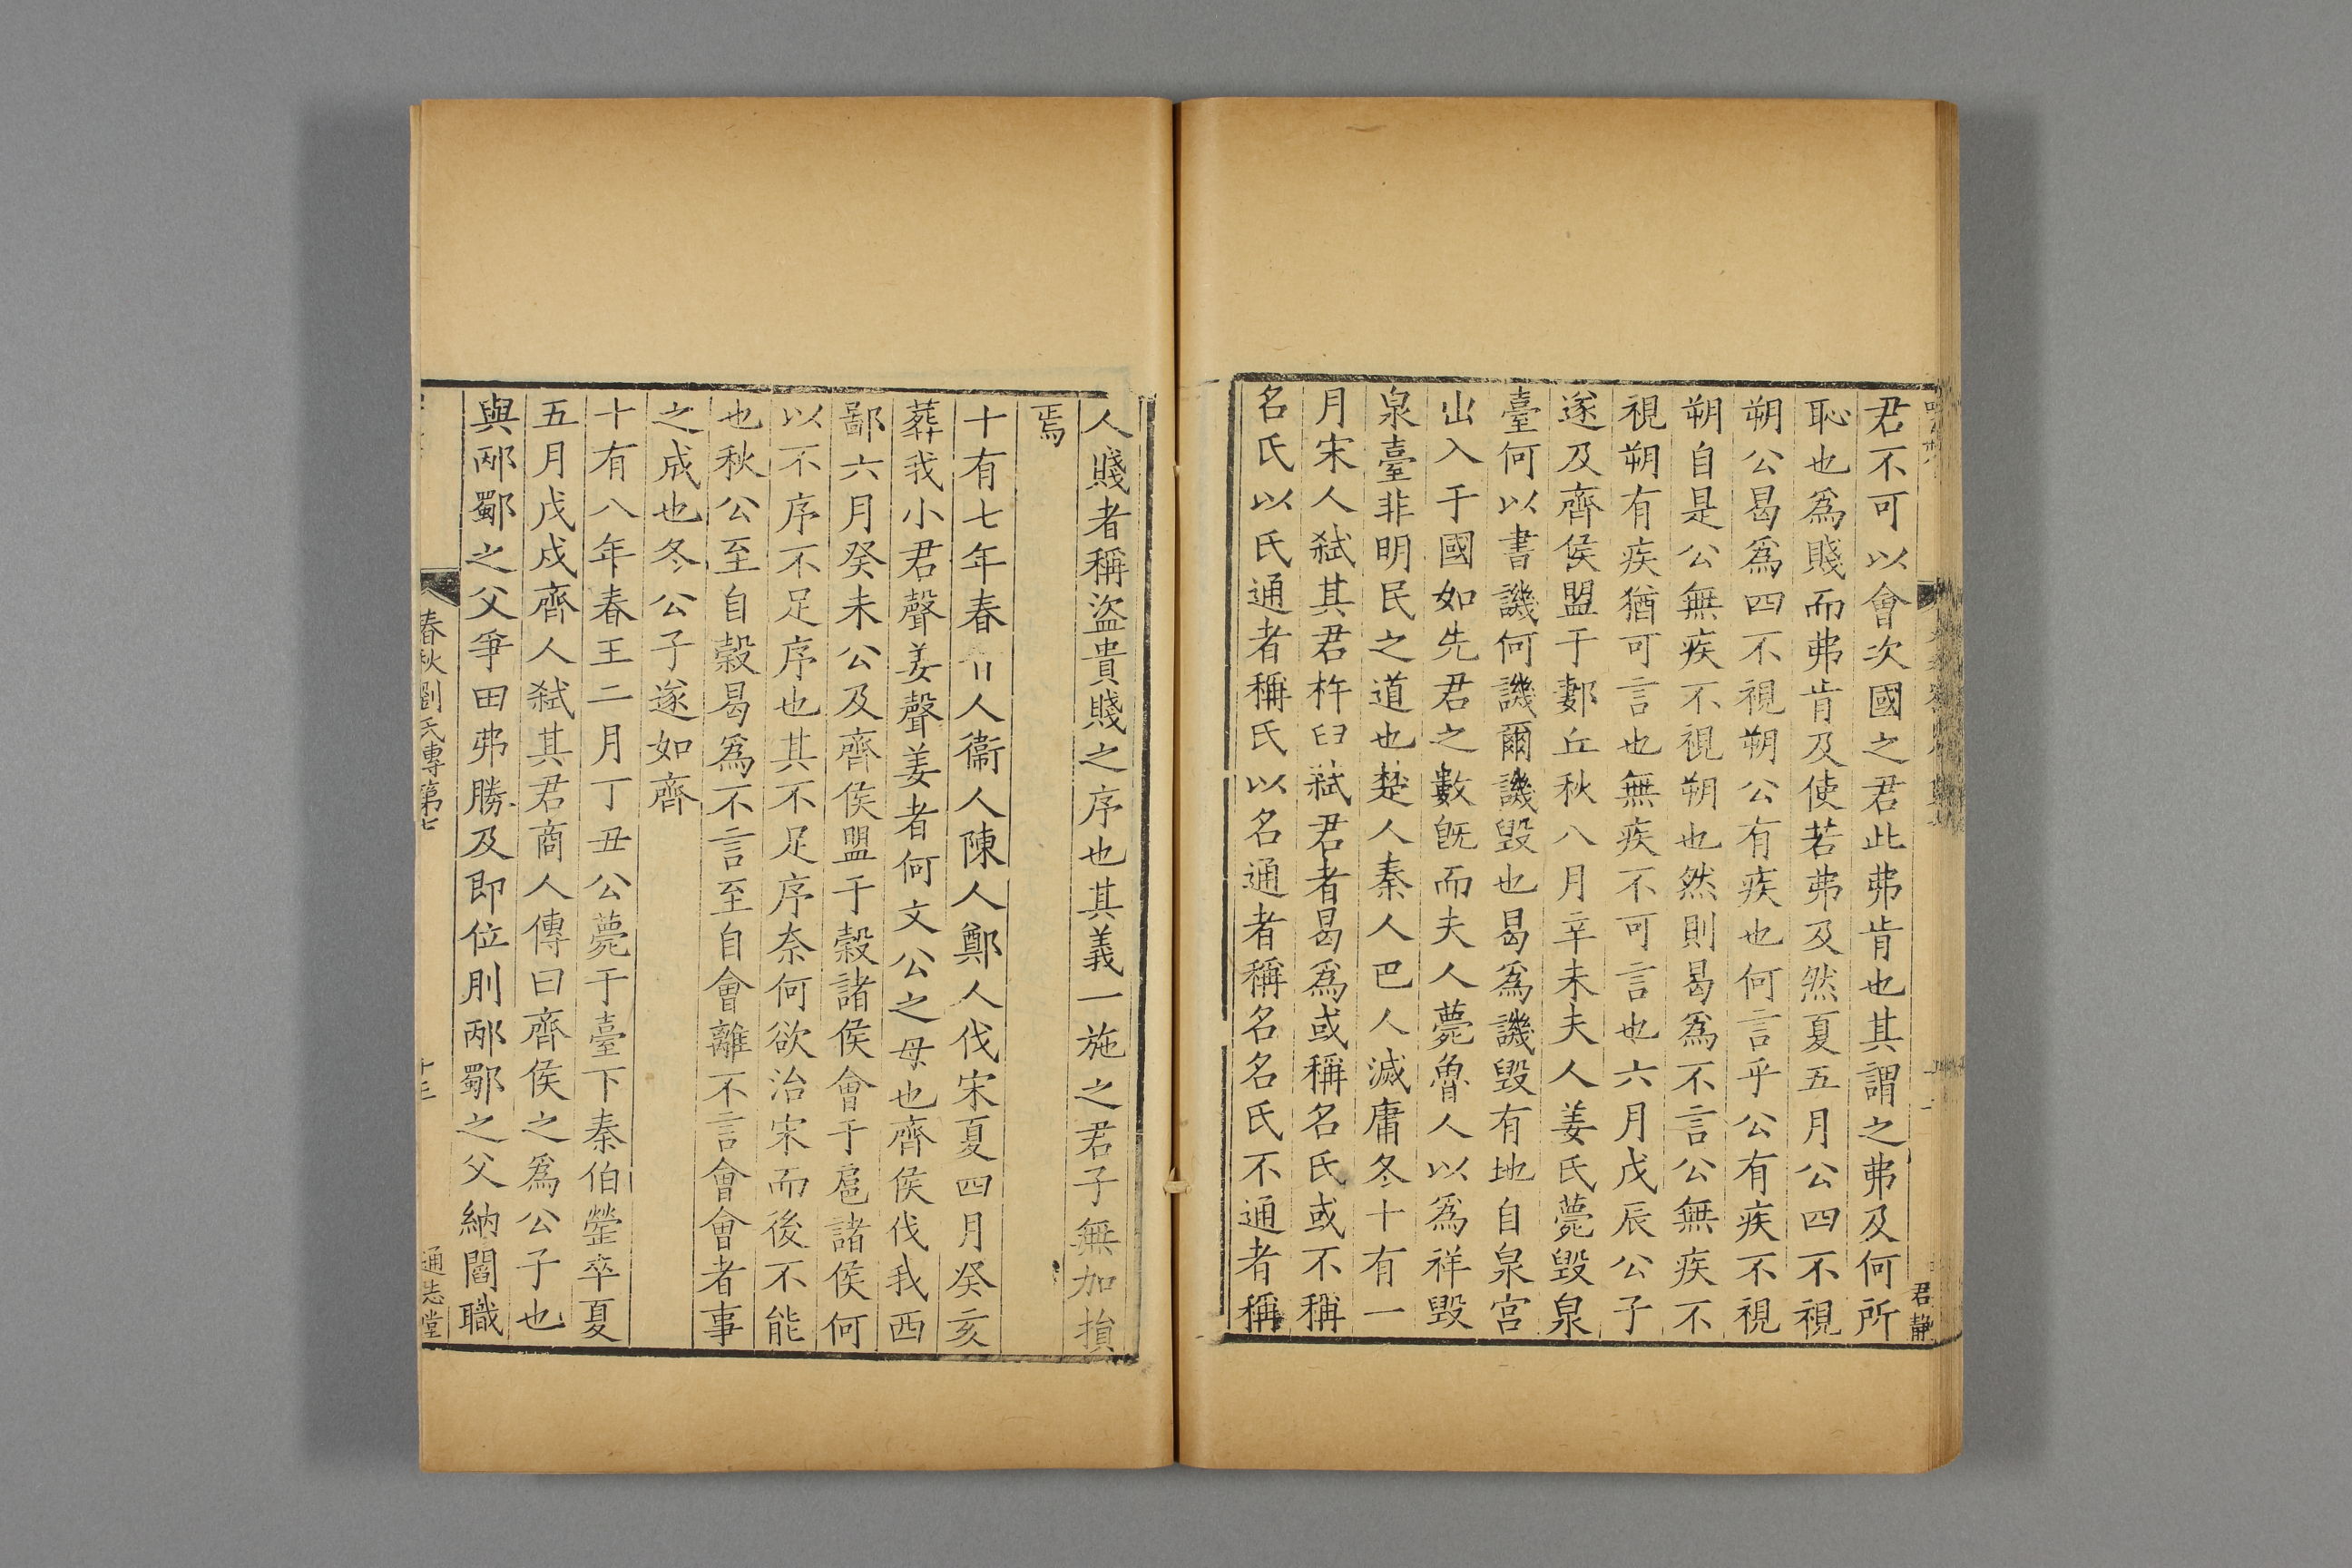 君不可以會次國之君此弗肯也其謂之弗及何所
恥也爲賤而弗肯及使若弗及然夏五月公四不視
朔公曷爲四不視朔公有疾也何言乎公有疾不視
朔自是公無疾不視朔也然則曷爲不言公無疾不
視朔有疾猶可言也無疾不可言也六月戊辰公子
遂及齊侯盟于郪丘秋八月辛未夫人姜氏薨毀泉
臺何以書譏何譏爾譏毀也曷爲譏毀有地自泉宮
出入于國如先君之數旣而夫人薨魯人以爲祥毀
泉臺非明民之道也楚人秦人巴人滅庸冬十有一
月宋人弑其君杵臼弑君者曷爲或稱名氏或不稱
名氏以氏通者稱氏以名通者稱名名氏不通者稱
君靜
人賤者稱盜貴賤之序也其義一施之君子無加損
焉
十有七年春人衞人陳人鄭人伐宋夏四月癸亥
葬我小君聲姜聲姜者何文公之母也齊侯伐我西
鄙六月癸未公及齊侯盟于穀諸侯會于扈諸侯何
以不序不足序也其不足序奈何欲治宋而後不能
也秋公至自穀曷爲不言至自會離不言會會者事
之成也冬公子遂如齊
十有八年春王二月丁丑公薨于臺下秦伯罃卒夏
五月戊戌齊人弑其君商人傳曰齊侯之爲公子也
與邴歜之父爭田弗勝及即位刖邴歜之父納閻職
春秋劉氏傳第七
通志堂